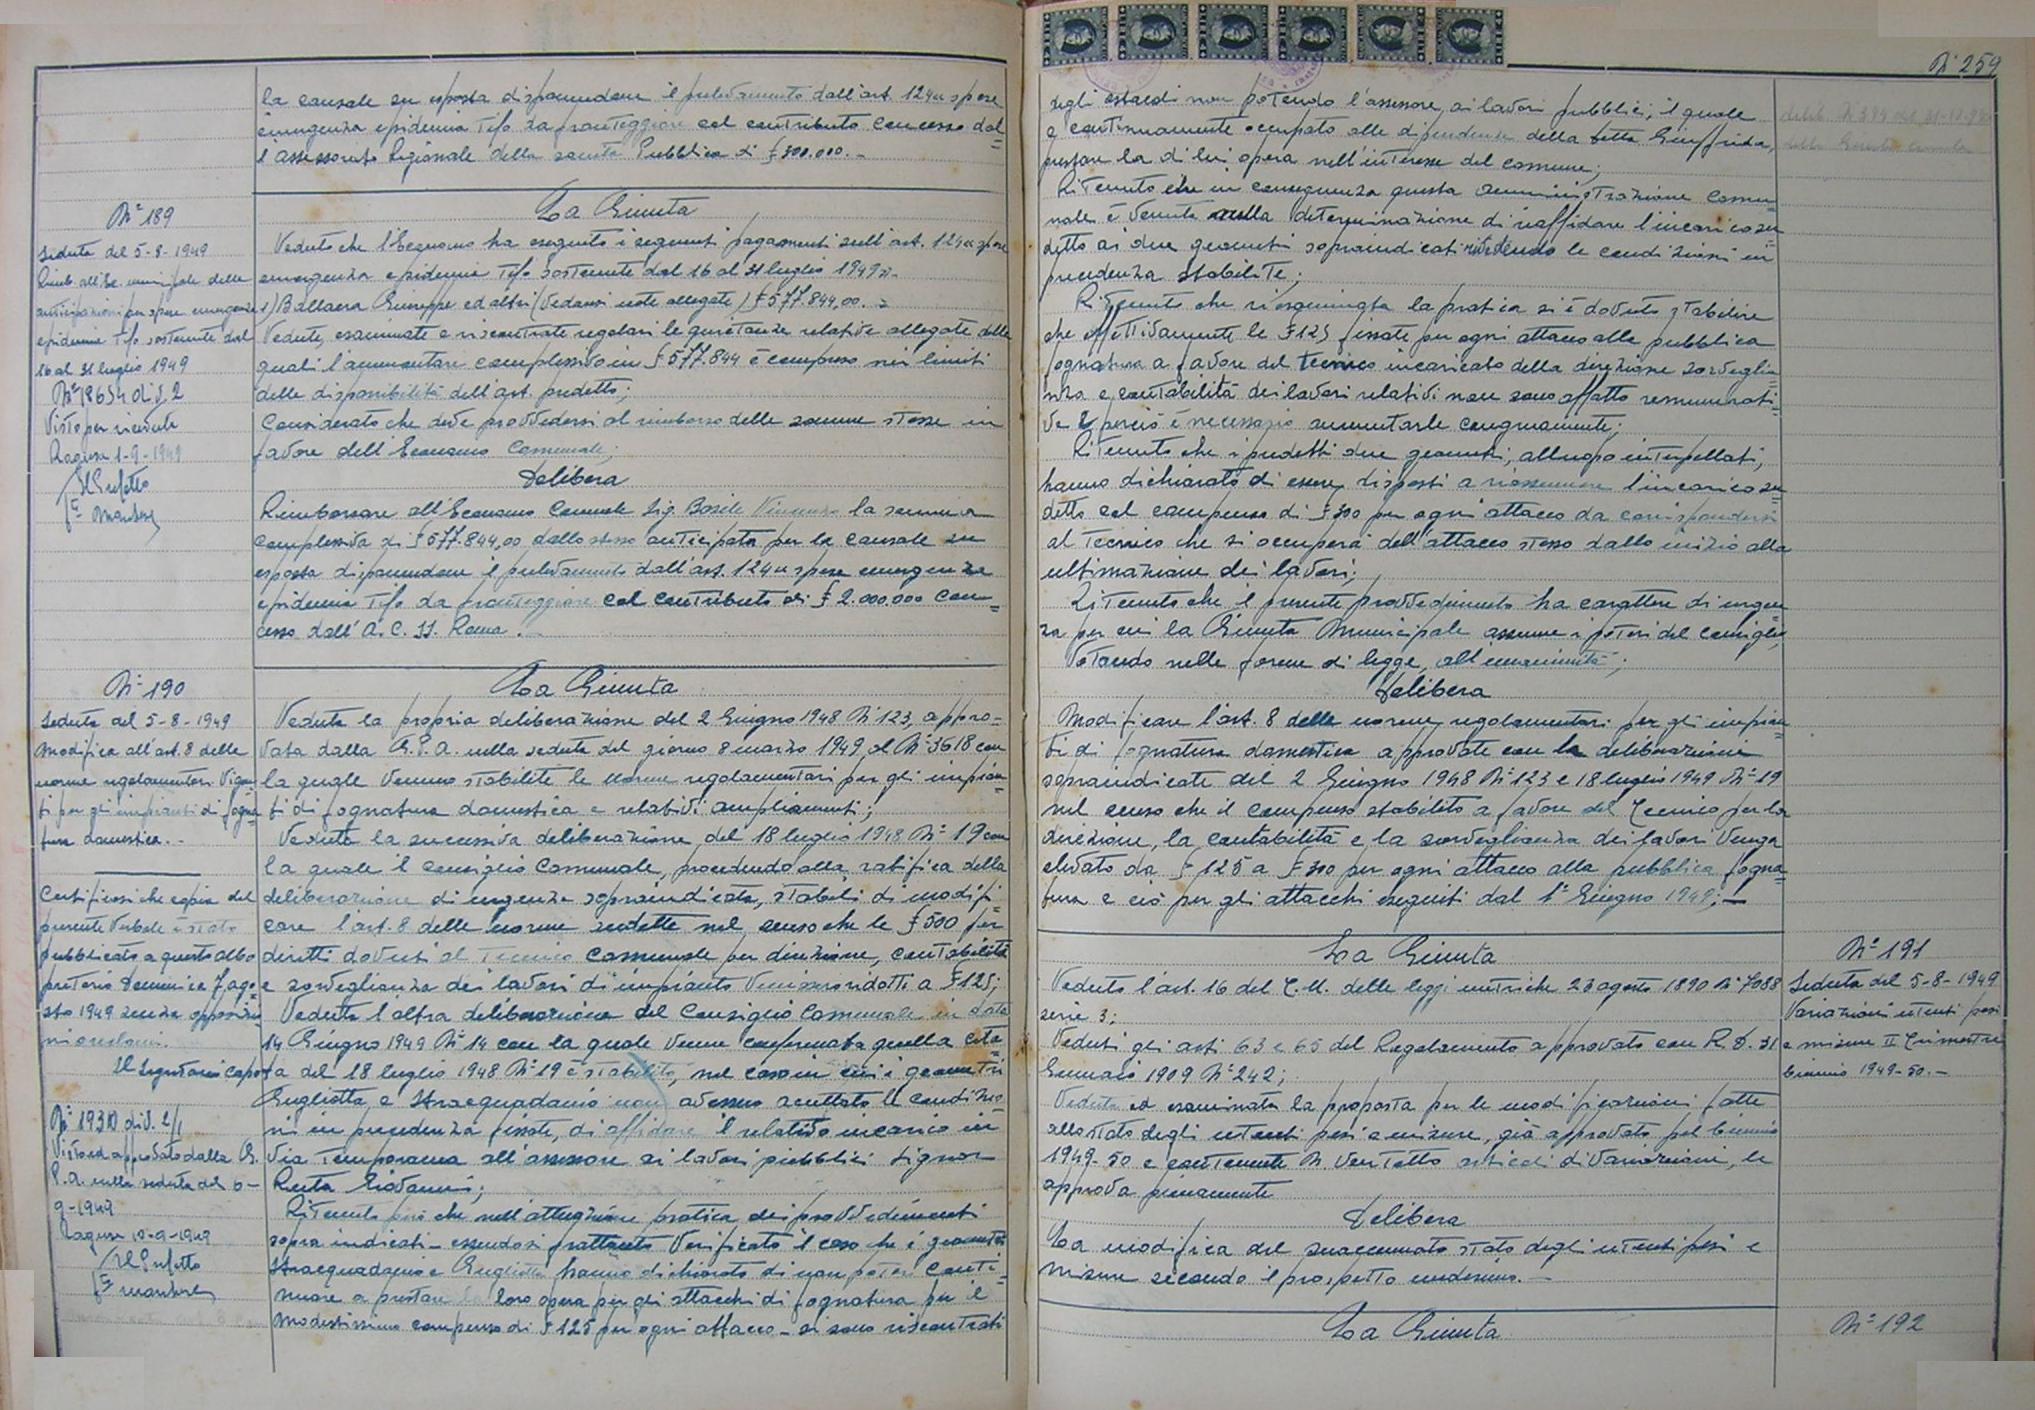 la causale su esposta disponendone il prelevamento dall'art. 124 u spese
emergenza epidemia tifo da fronteggiare col contributo concesso dal=
l'assessorato Regionale della sanità Pubblica di £ 300.000. –
N° 189
Seduta del 5-8-1949
Rimb. all'Ec. municipale delle
anticipazioni per spese emergenza
epidemia tifo sostenute dal
16 al 31 luglio 1949
N° 18654 div. 2
Visto per ricevuta
Ragusa 1-9-1949
Il Prefetto
La Giunta
Veduto che l'Economo ha eseguito i seguenti pagamenti sull'art. 124 u spese
emergenza epidemia tifo sostenute dal 16 al 31 luglio 1949
1) Ballaera Giuseppe ed altri (vedansi note allegate) £ 577.844,00. =
Vedute, esaminate e riscontrate regolari le quietanze relative allegate delle
quali l'ammontare complessivo in £ 577.844 è compreso nei limiti
delle disponibilità dell'art. predetto;
Considerato che deve provvedersi al rimborso delle somme stesse in
favore dell'Economo Comunale;
Delibera
Rimborsare all'Economo Comunale Sig. Bosile Vincenzo la somma
complessiva di £ 577.844,00 dallo stesso anticipata per la causale su
esposta disponendone il prelevamento dall'art. 124 u spese emergenza
epidemia tifo da fronteggiare col contributo di £ 2.000.000 con=
cesso dall'A.C.IS. Roma. –
N° 190
Seduta del 5-8-1949
Modifica all'art. 8 delle
norme regolamentari vigen
ti per gli impianti di fogna=
tura domestica. -
Certificasi che copia del
presente verbale è stato
pubblicato a questo albo
pretorio Domenica 7 ago=
sto 1949 senza opposizio
ni o reclami.
Il Segretario capo
N° 19310 div. 2/1
Visto ed approvato dalla G.
P. A. nella seduta del 6-
9-1949
Ragusa 10-9-1949
Il Prefetto
La Giunta
Veduta la propria deliberazione del 2 Giugno 1948 N° 123, appro=
vata dalla G.P.A. nella seduta del giorno 8 marzo 1949 al N° 3618 con
la quale venno stabilite le norme regolamentari per gli impian=
ti di fognatura domestica e relativi ampliamenti;
Veduta la successiva deliberazione del 18 luglio 1948 N° 19 con
la quale il consiglio Comunale, procedendo alla ratifica della
deliberazione di urgenza sopraindicata, stabilì di modifi=
care l'art. 8 delle norme sudette nel senso che le £ 500 per
diritti dovuti al Tecnico Comunale per direzione, contabilità
e sorveglianza dei lavori di impianto venissero ridotti a £ 125;
Veduta l'altra deliberazione del Consiglio Comunale in data
14 Giugno 1949 N° 14 con la quale venne confermata quella cita=
ta del 18 luglio 1948 N° 19 e stabilito, nel caso in cui i geometri
Gugliotta e Stracquadanio non avessero accettato le condizio=
ni in precedenza fissate, di affidare il relativo incarico in
via temporanea all'assessore ai lavori pubblici Signor
Ruta Giovanni;
Ritenuto però che nell'attuazione pratica dei provvedimenti
sopra indicati – essendosi frattanto verificato il caso che i geometri
Stracquadanio e Gugliotta hanno dichiarato di non poter conti=
nuare a prestare la loro opera per gli attacchi di fognatura per il
modestissimo compenso di £ 125 per ogni attacco – si sono riscontrati
N° 259
degli ostacoli non potendo l'assessore ai lavori pubblici, il quale
è continuamente occupato alle dipendenze della Ditta Giuffrida,
prestare la di lui opera nell'interesse del comune;
Ritenuto che in conseguenza questa amministrazione comu=
nale è venuta nella determinazione di riaffidare l'incarico su
detto ai due geometri sopraindicati rivedendo le condizioni in
precedenza stabilite;
Ritenuto che riesaminata la pratica si è dovuto stabilire
che effettivamente le £ 125 fissate per ogni attacco alla pubblica
fognatura a favore del tecnico incaricato della direzione sorveglia=
nza e contabilità dei lavori relativi non sono affatto remunerati=
ve e perciò è necessario aumentarle congruamente;
Ritenuto che i predetti due geometri, all'uopo interpellati,
hanno dichiarato di essere disposti a riassumere l'incarico su=
detto col compenso di £ 300 per ogni attacco da corrispondersi
al tecnico che si occuperà dell'attacco stesso dallo inizio alla
ultimazione dei lavori;
Ritenuto che il presente provvedimento ha carattere di urgen
za per cui la Giunta Municipale assume i poteri del consiglio;
Votando nelle forme di legge, all'unanimità;
Delibera
Modificare l'art. 8 delle norme regolamentari per gli impian=
ti di fognatura domestica approvate con la deliberazione
sopraindicate del 2 Giugno 1948 N° 123 e 18 luglio 1949 N° 19
nel senso che il compenso stabilito a favore del Tecnico per la
direzione, la contabilità e la sorveglianza dei lavori venga
elevato da £ 125 a £ 300 per ogni attacco alla pubblica fogna=
tura e ciò per gli attacchi eseguiti dal 1° Giugno 1949; –
N° 191
Seduta del 5-8-1949
Variazioni utenti pesi
e misure II Trimestre
biennio 1949-50. –
La Giunta
Veduto l'art. 16 del T.U. delle leggi metriche 23 agosto 1890 N° 7088
serie 3;
Veduti gli arti 63 e 65 del Regolamento approvato con R.D. 31
Gennaio 1909 N° 242;
Veduta ed esaminata la proposta per le modificazioni fatte
allo stato degli utenti pesi e misure, già approvato pel biennio
1949-50 e contenente N ventotto articoli di variazioni, le
approva pienamente
Delibera
La modifica del suaccennato stato degli utenti pesi e
misure secondo il prospetto medesimo. –
La Giunta
N° 192